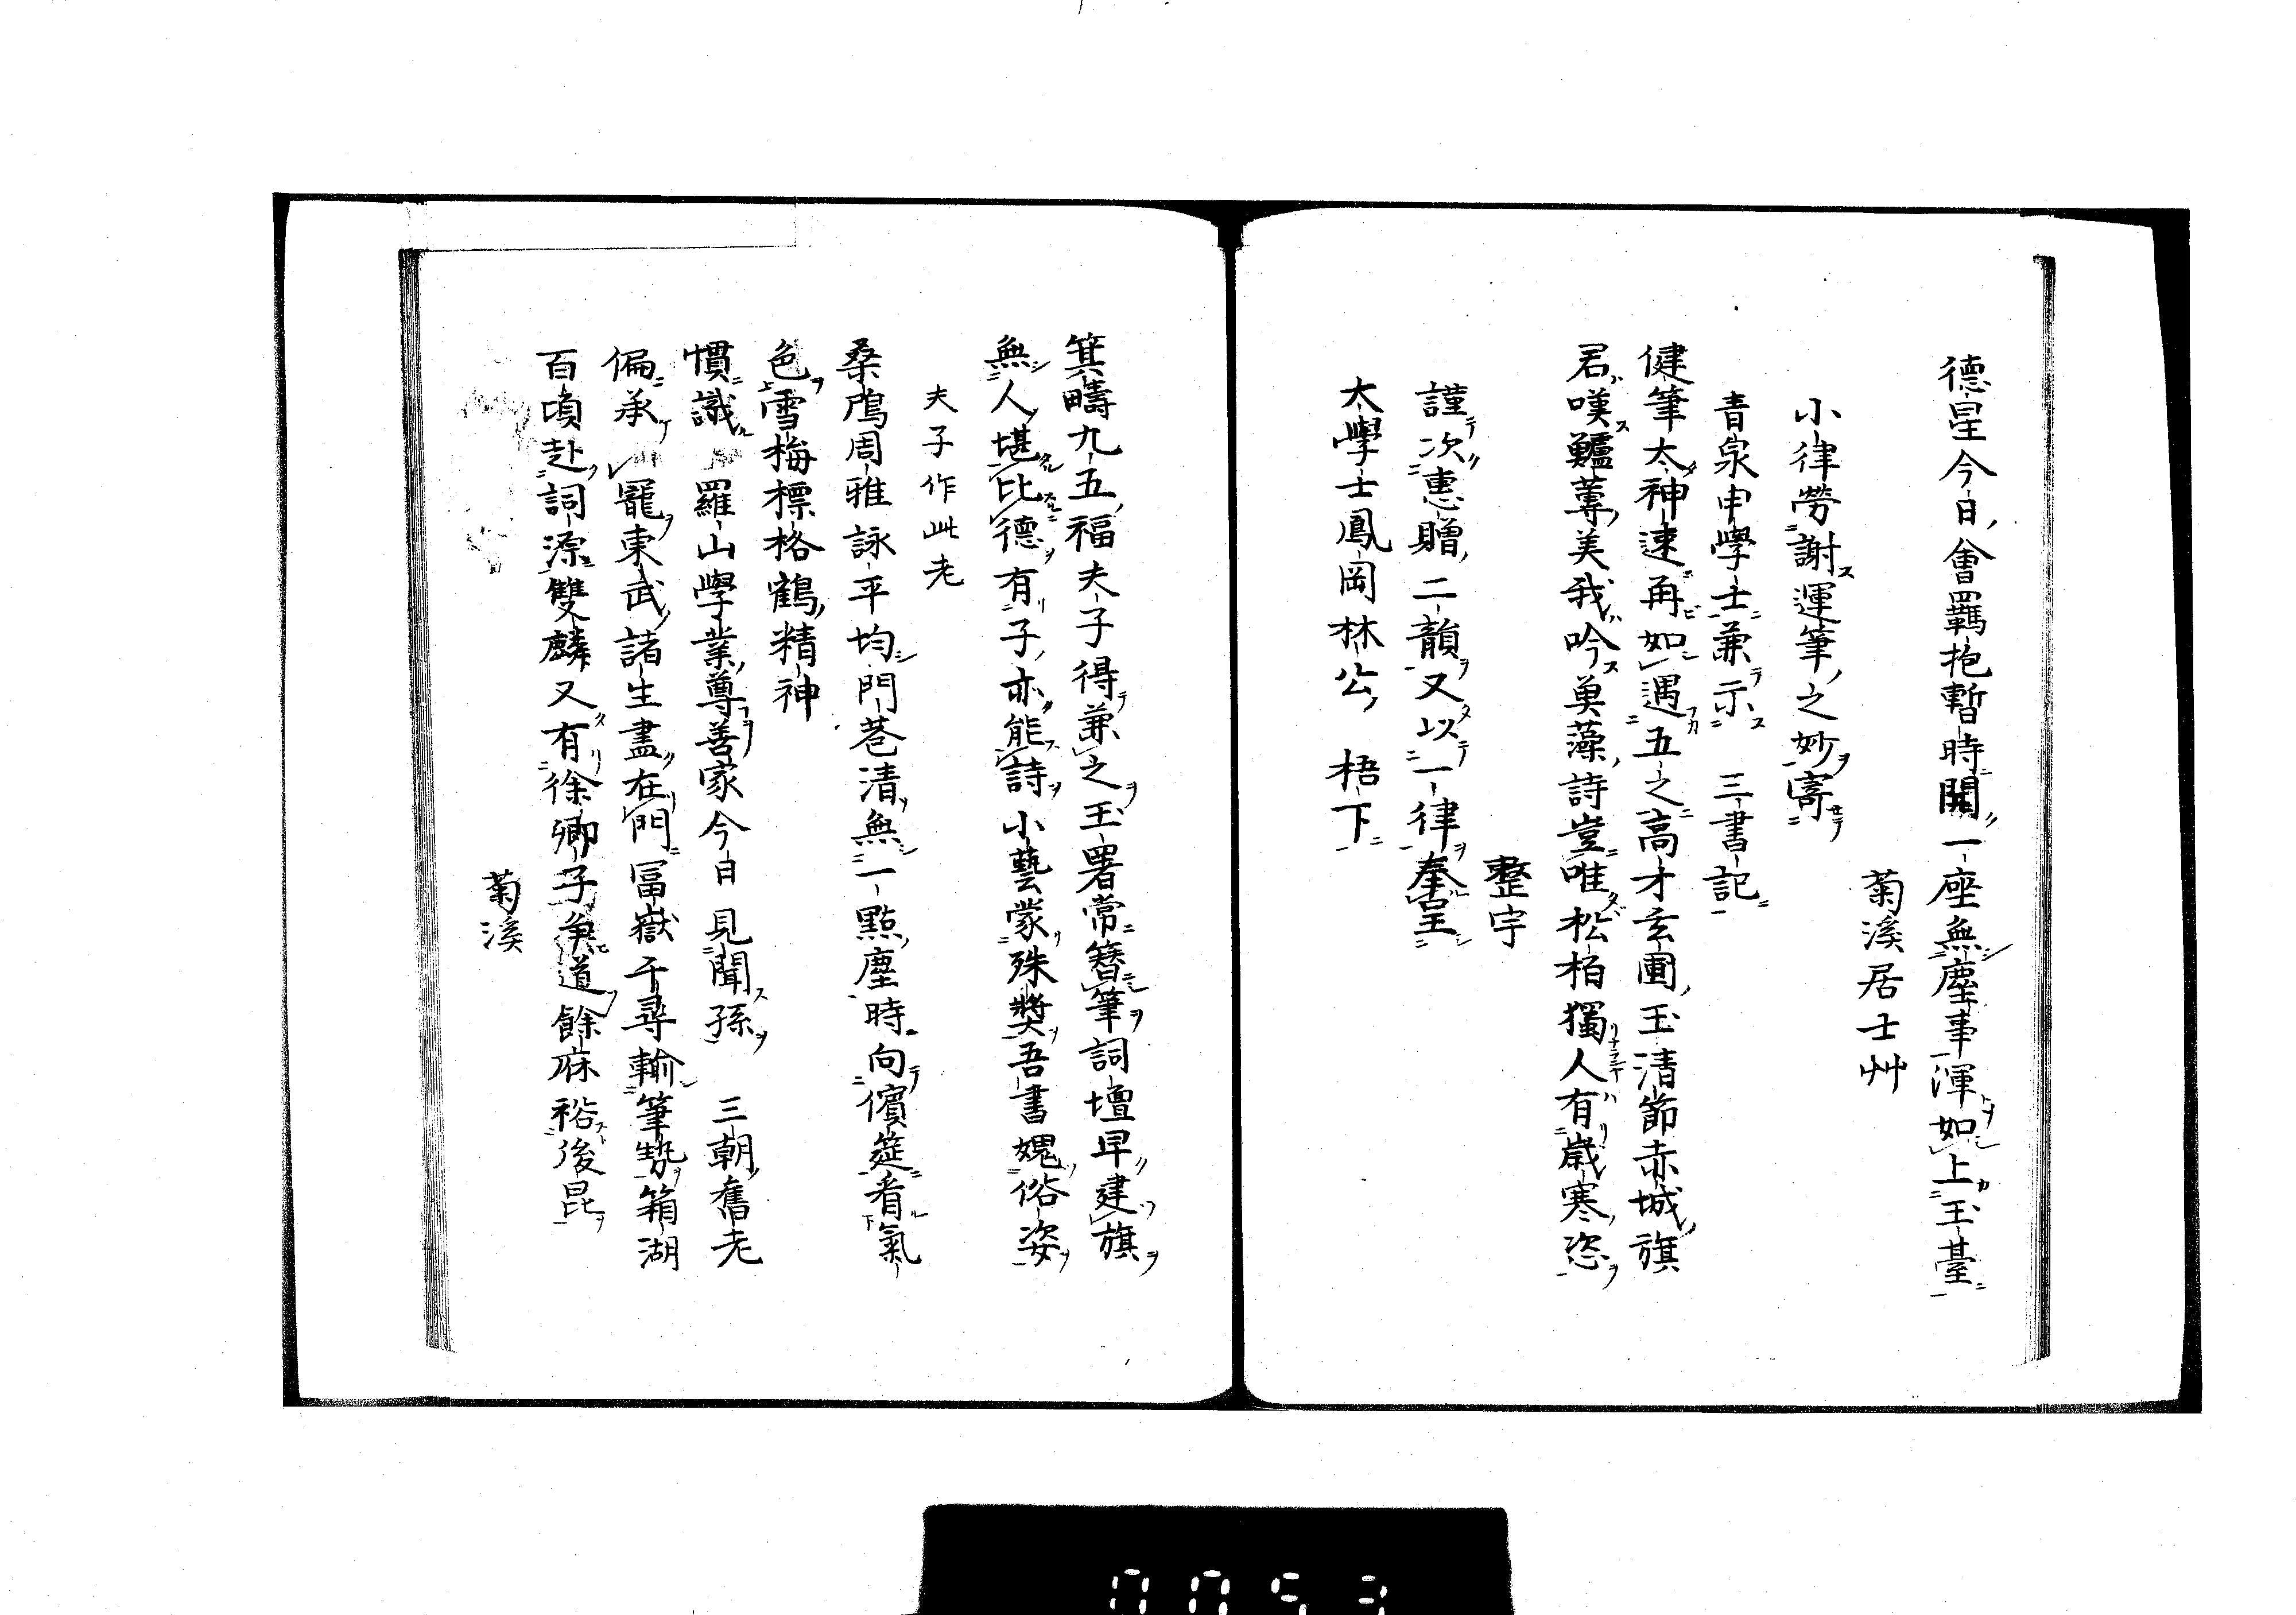 德星今日會羈抱暫時開一座無塵事渾如上玉臺
菊溪居士艸
小律勞謝運筆之妙寄
青泉申學士兼示 三書記
健筆太神速再如遇五之高才玄圃玉清節赤城旗
君嘆鱸蓴美我吟藻詩豈唯松栢獨人有歲寒恣
整宇
謹次惠贈二韻又以一律奉呈
大學士鳳岡林公 梧下
箕疇九五福夫子得兼之玉署常簪筆詞壇早建旗
無人堪比德有子亦能詩小藝蒙殊奬吾書媿俗姿
夫子作此老
桑鴈周雅詠平均門巷清無一點塵時向儐筵看氣
色雪梅標格鶴精神
慣識羅山學業尊善家今日見聞孫 三朝舊老
偏承寵東武諸生盡在門冨嶽千尋輸筆勢箱湖
百頃赴詞源雙麟又有徐卿子爭道餘庥裕後昆
菊溪
0053